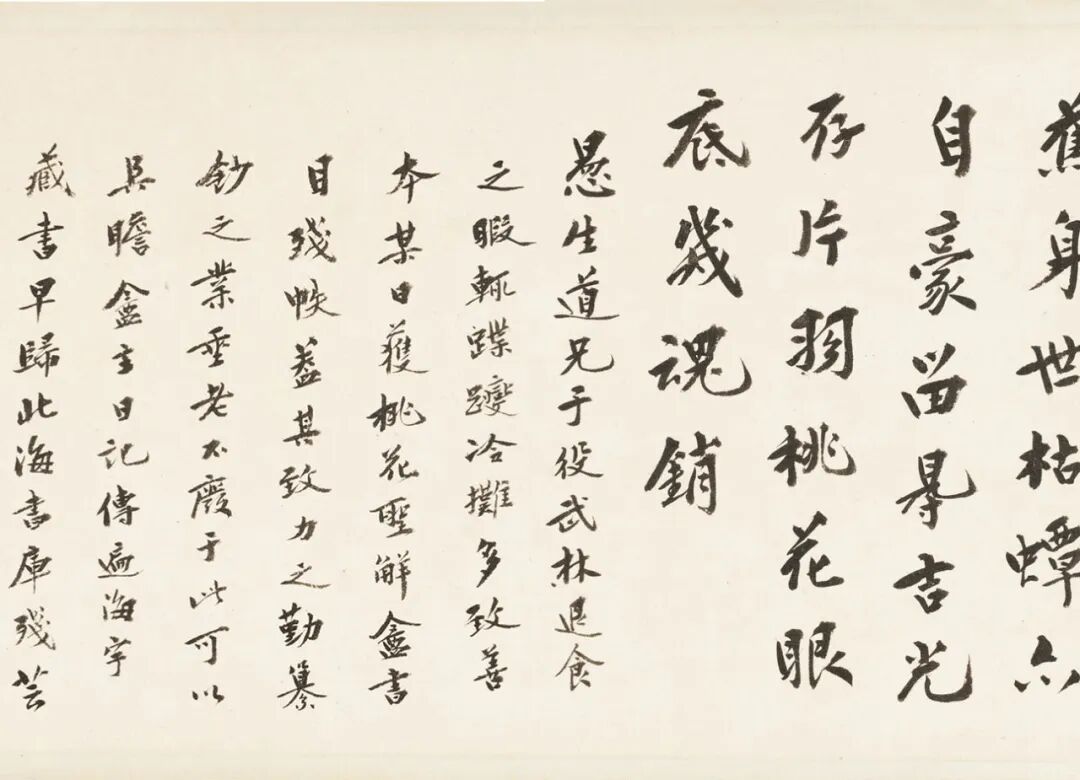 舊身世枯蟫亦
自豪留㝵吉光
存片羽桃花眼
底幾魂銷
愚生道兄于役武林退食
之暇輒蹀躞冷攤多致善
本某日獲桃花聖解盦書
目殘帙蓋其致力之勤纂
鈔之業垂老不廢于此可以
見瞻盦主日記傳遍海宇
藏書早歸此海書庫殘芸